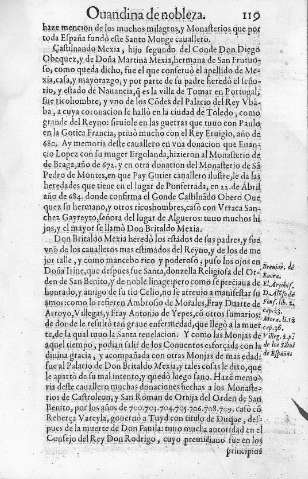 Ouandina de nobleza. 119
haze mencion de los muchos milagros, y Monasterios que por
toda España fundó este Santo Monge cauallero.
Castinaldo Mexia, hijo segundo del Conde Don Diego
Obequez, y de Doña Martina Mexia, hermana de San Fratuo-
so, como queda dicho, fue el que conseruó el apellido de Me-
xia, casa, y mayorazgo, y por parte de su padre heredó el seño-
rio, y estado de Nauancia, q̃ es la villa de Tomar en Portugal,
fue ricohombre, y vno de los Cõdes del Palacio del Rey Vba-
ba, a cuya coronacion se hallò en la ciudad de Toledo, como
grande del Reyno: siruiole en las guerras que tuuo con Paulo
en la Gotica Francia, priuó mucho con el Rey Eruigio, año de
680. Ay memoria deste cauallero en vna donacion que
Lopez con su muger hizieron al Monasterio de
de Braga, año de 672. y en otra donacion del Monasterio de Sã
Pedro de Montes, en que Pay Gutier cauallero ilustre, le da las
heredades que tiene en el lugar de Ponferrada, en 22. de Abril
año de 684. donde confirma el Conde Obero Oue
quez su hermano, y otros ricoshombres, casò con Vrraca San-
chez señora del lugar de Algueros: tuuo muchos hi
jos, y el mayor se llamó Don Britaldo Mexia.
Don Britaldo Mexia heredò los estados de sus padres, y fue
vno de los caualleros mas estimados del Reyno, y de los de me
jor talle, y como mancebo rico y poderoso, puso los ojos en
Doña Irine, que despues fue Santa, donzella Religiosa del Or-
den de San Benito, y de noble linage: pero como se preciaua de
honrado, y amigo de su tio Celio, no le atreuio a manifestar su
amor: como lo refieren Ambrosio de Morales, Fray Duarte de
Arroyo, Villegas, y Fray Antonio de Yepes, cõ otros sumarios:
dor de le resultó tan graue enfermedad, que llegò a la muer
te, de la qual tuuo la Santa reuelacion: Y como las Monjas de
aquel tiempo, podian salir de los Conuentos esforçada con la
diuina gracia, y acompañada con otras Monjas de mas edad:
fue al Palacio de Don Britaldo Mexia, y tales cosas le dixo, que
le apartò de su mal intento, y quedó luego sano. Haze memo-
ria deste cauallero muchas donaciones hechas a los Monaste-
rios de Castroleon, y San Roman de Ornija del Orden de San
Benito, por los años de 700. 701. 704. 705. 706. 708. casò cõ
Vareyla, gouernò a Tuyd con titulo de Duque, des-
pues de la muerte de Don Fauila: tuuo mucha autoridad en el
Consejo del Rey Don Rodrigo, cuyo fue en los
principios
de
de los Sãtos
de España